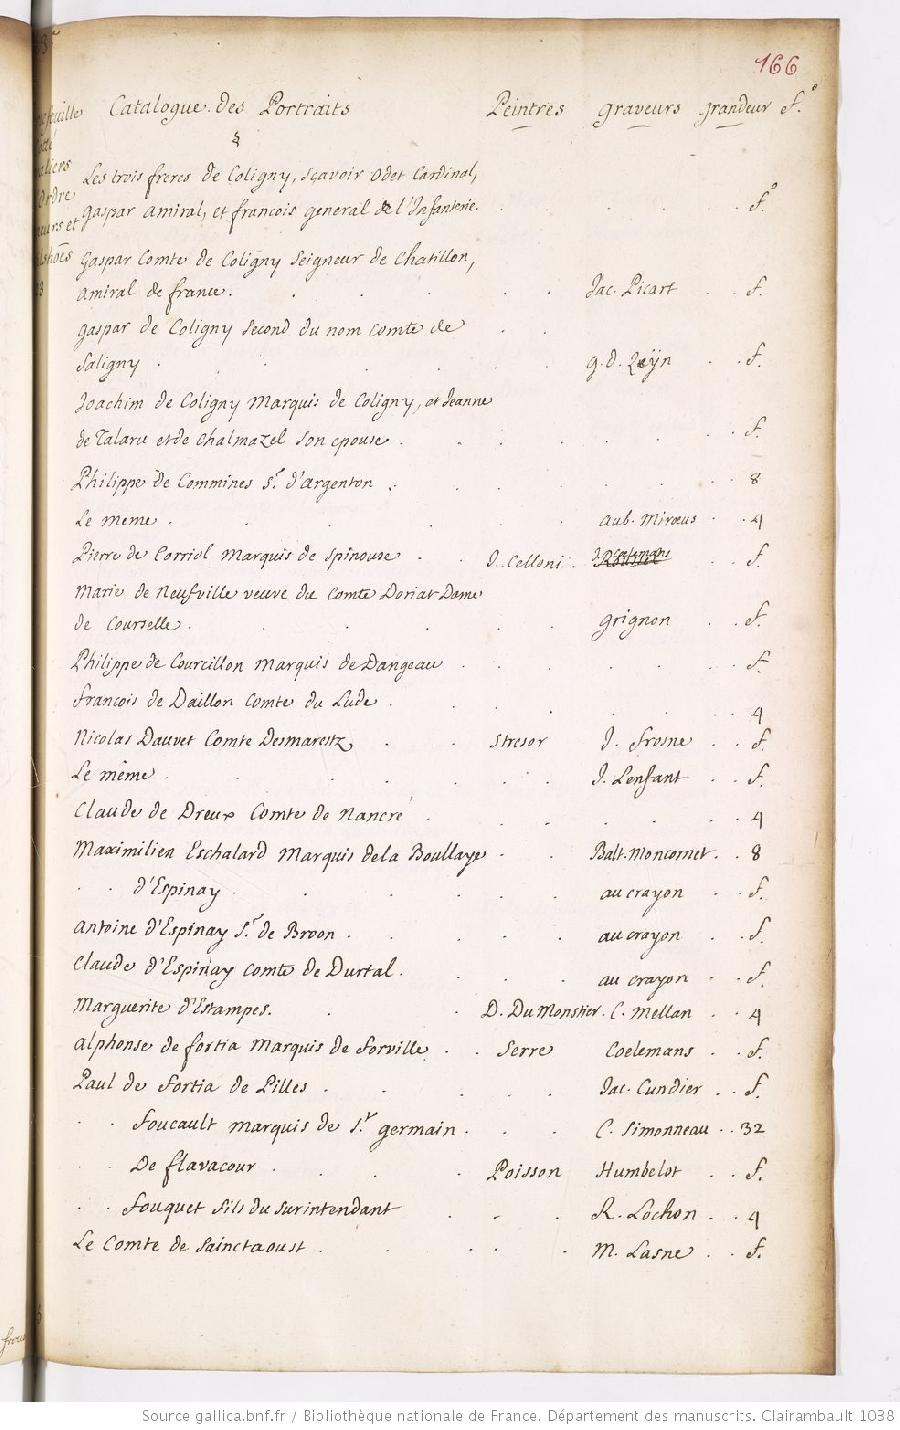 166
Catalogue des Portraits Peintres graveurs grandeur f.°
§
Les trois freres de Coligny, sçavoir Odet Cardinal,
gaspar amiral, et francois general de l'Infanterie. f.°
gaspar Comte de Coligny Seigneur de Chatillon,
amiral de france. Jac. Picart f.
gaspar de Coligny second du nom comte de
Saligny g. d. f.
Joachim de Coligny Marquis de Coligny, et Jeanne
de Talaru et de Chalmazel son epouse. f.
Philippe de Commines Sr. d'argenton 8
Le meme. aub. Miroeus 4
Pierre de Corriol Marquis de Spinouse J. Celloni f.
Marie de Neufville veuve du Comte Doriat Dame
de Courselle. grignon f.
Philippe de Courcillon Marquis de Dangeau f.
francois de Daillon Comte du Lude 4
Nicolas Dauvet Comte Desmarestz Stresor J. frosne f.
Le même J. Lenfant f.
Claude de Dreux Comte de Nancré 4
Maximilien Eschalard Marquis de la Boullaye Balt. Moncornet. 8
d'Espinay au crayon f.
antoine d'Espinay Sr. de Broon. au crayon f.
Claude d'Espinay comte de Durtal. au crayon f.
Marguerite d'Estampes. D. Du Monstier. C. Mellan 4
alphonse de fortia Marquis de forville Serre Coelemans f.
Paul de fortia de Pilles Jac. Cundier f.
foucault marquis de St. germain C. Simonneau 32
De flavacour Poisson Humbelot f.
fouquet fils du surintendant R. Lochon 4
Le Comte de Sainctaoust M. Lasne f.
Source gallica.bnf.fr / Bibliothèque nationale de France. Département des manuscrits. Clairambault 1038